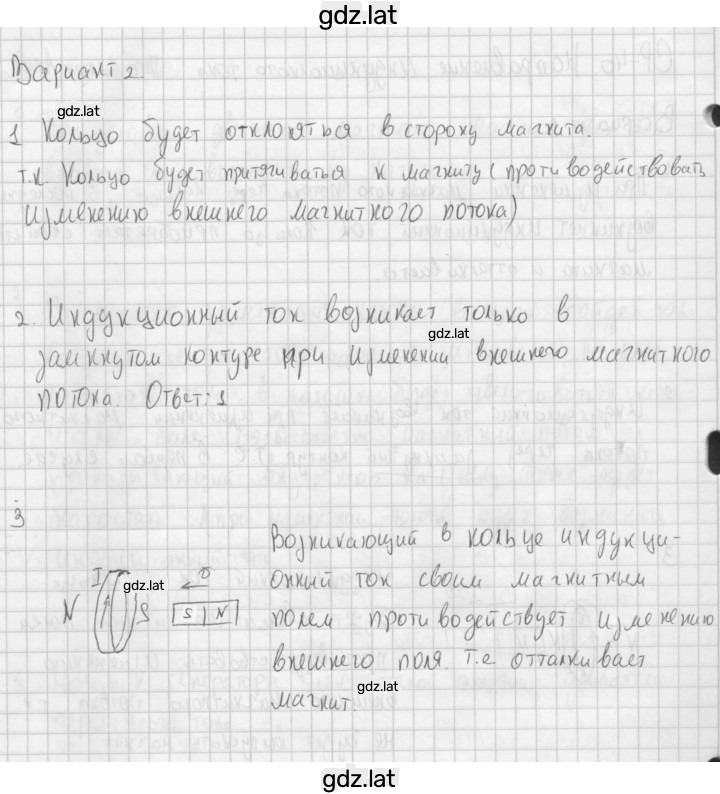 gdz.lat
Вариант 2.
gdz.lat
1 Кольцо будет отклоняться в сторону магнита.
т.к. Кольцо будет притягиваться к магниту (противодействовать
изменению внешнего магнитного потока)
2. Индукционный ток возникает только в
gdz.lat
замкнутом контуре при изменении внешнего магнитного
потока. Ответ: 1
3
Возникающий в кольце индукци-
I gdz.lat υ онный ток своим магнитным
N S S N полем противодействует изменению
внешнего поля. т.е отталкивает
gdz.lat
магнит.
gdz.lat